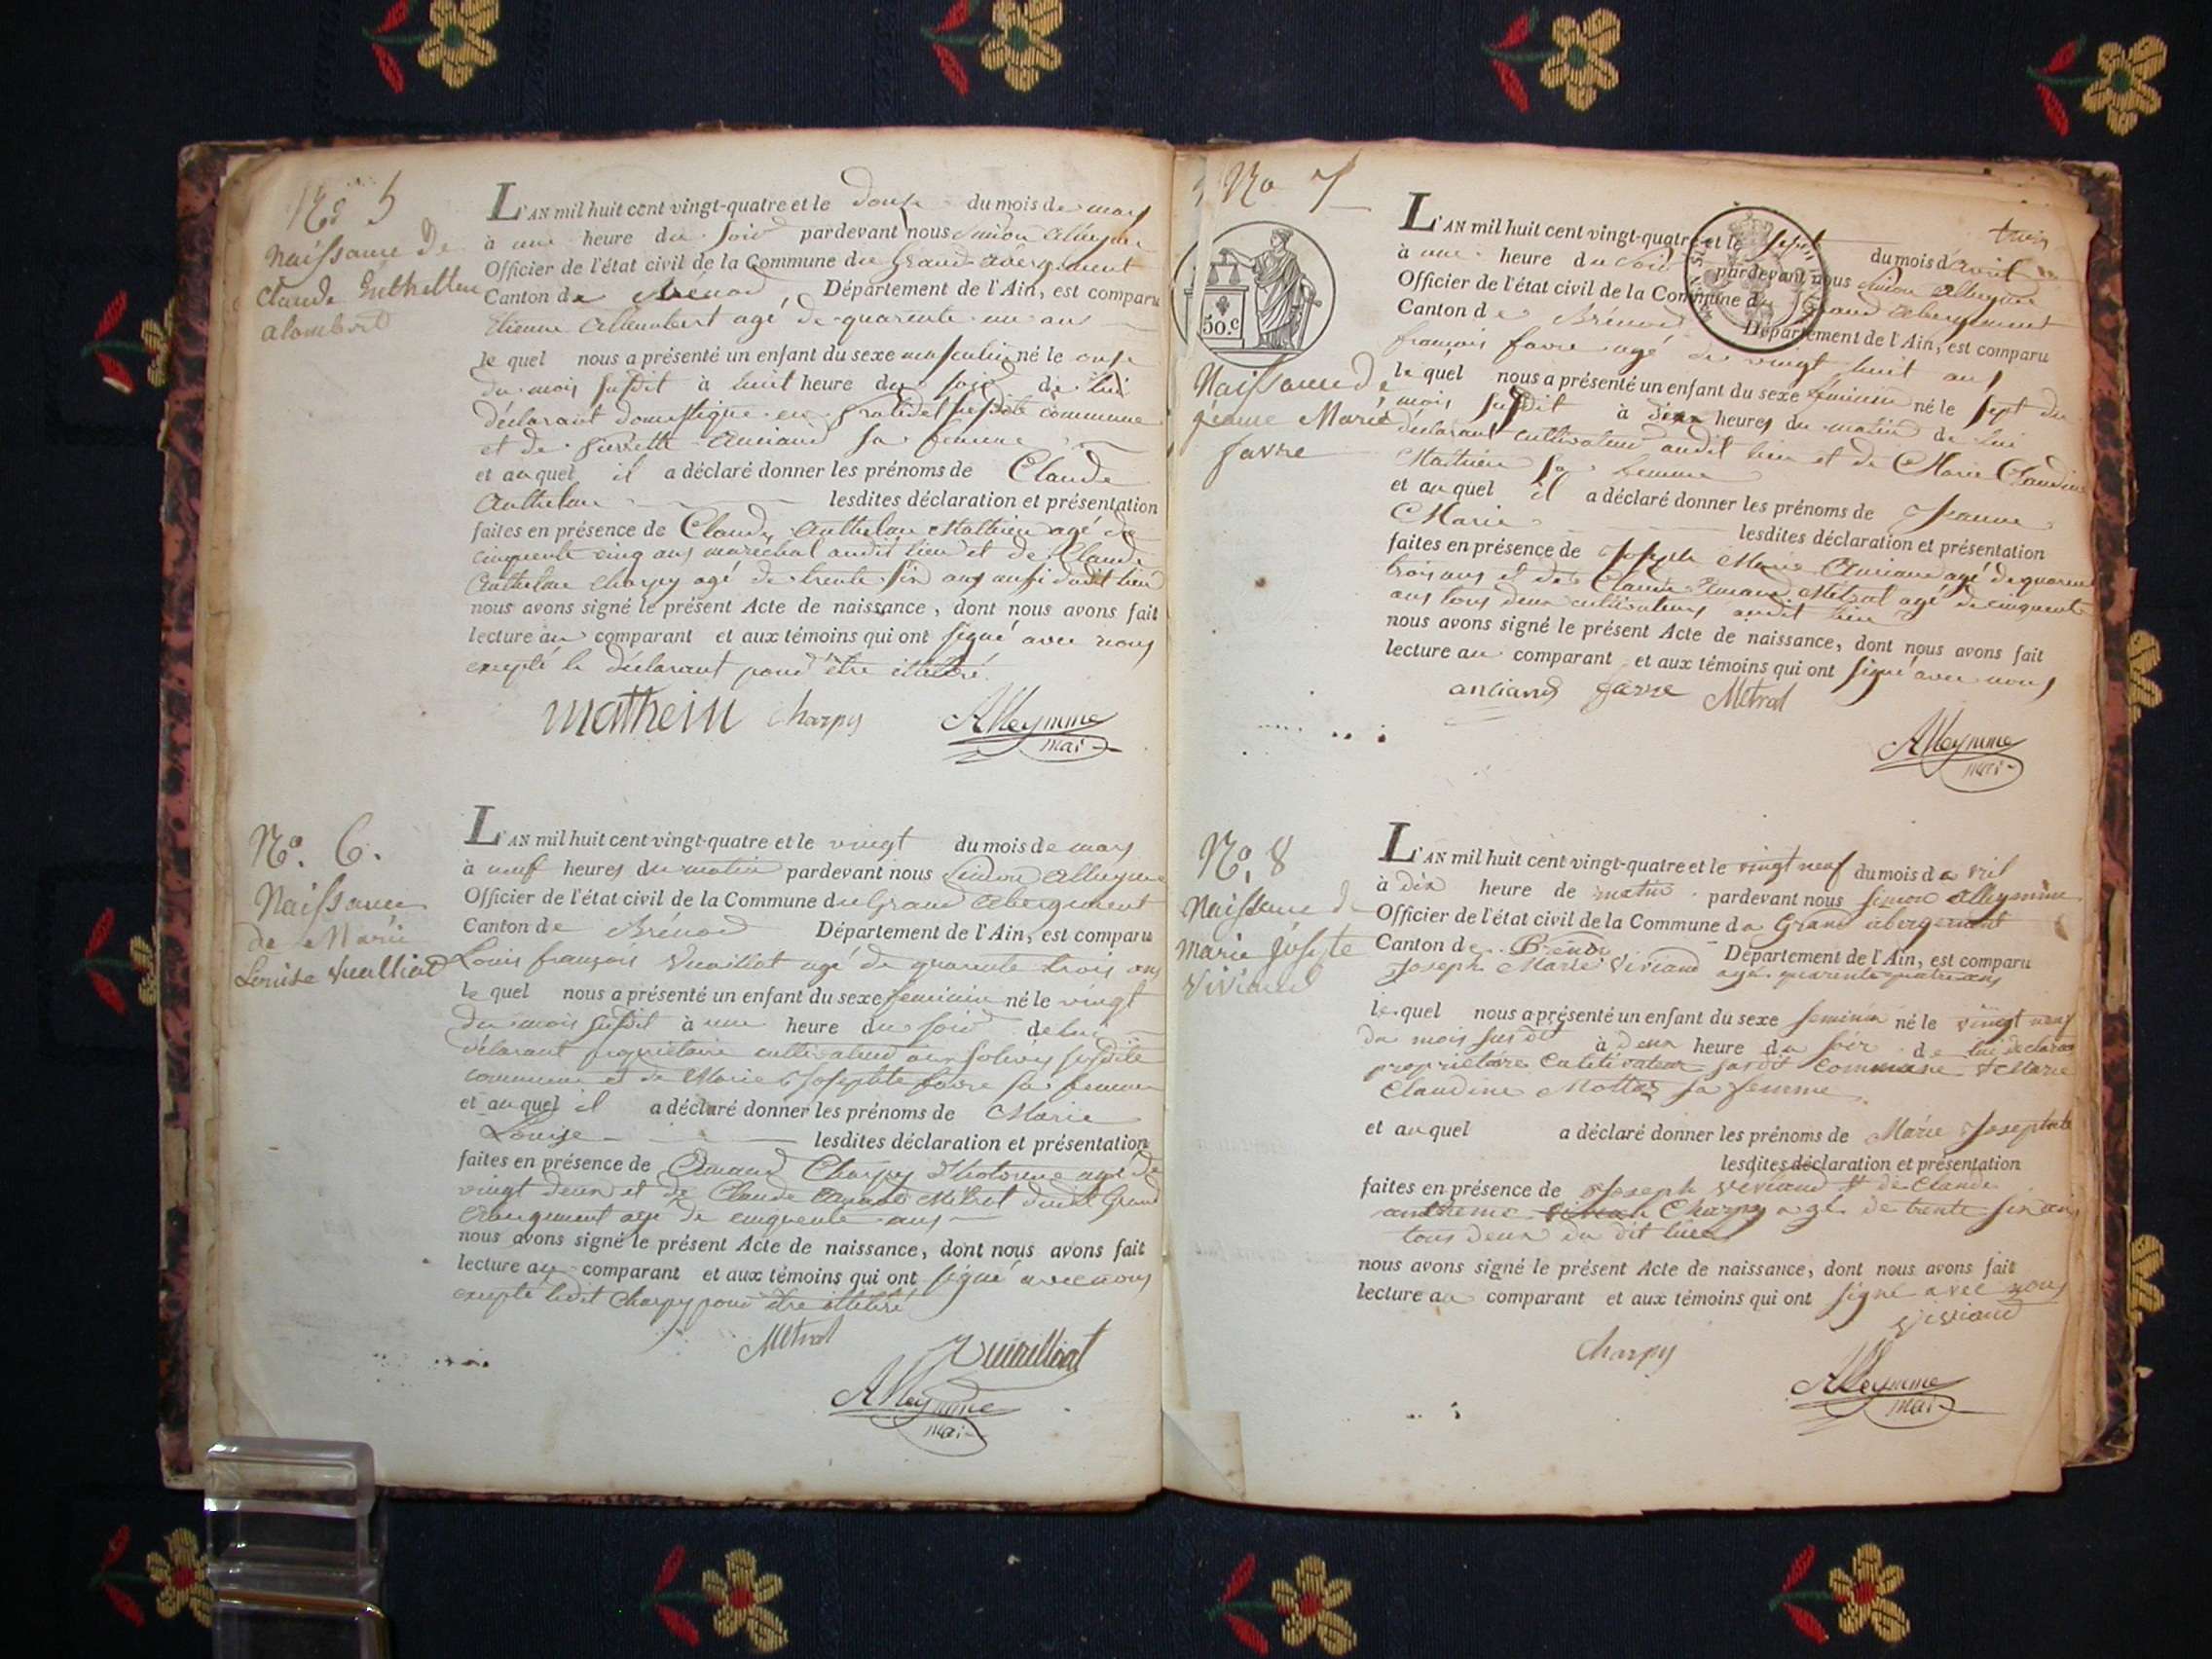 No 5
Naissance de
Claude
alombert
L'AN mil huit cent vingt-quatre et le douze du mois de mars
à une heure du soir pardevant nous Simon Alleyme
Officier de l'état civil de la Commune du Grand abergement
Canton de Brénod Département de l'Ain, est comparu
Etienne Allombert agé de quarente un ans
le quel nous a présenté un enfant du sexe masculin né le onze
du mois susdit à huit heure du soir de lui
déclarant domestique en susdite commune
et de Pierrette Anciand sa femme
et au quel il a déclaré donner les prénoms de Claude
Anthelme lesdites déclaration et présentation
faites en présence de Claude Anthelme Mathieu agé de
cinquente cinq ans marechal audit lieu et de Claude
Anthelme Charpy agé de trente six ans aussi dudit lieu
nous avons signé le présent Acte de naissance, dont nous avons fait
lecture au comparant et aux témoins qui ont signé avec nous
excepté le déclarant pour être illitéré
mathein Charpy Alleymme
mai
No. 6.
Naissance
de Marie
Louise Vuailliat
L'AN mil huit cent vingt-quatre et le vingt du mois de mars
à neuf heures du matin pardevant nous Simon Alleyme
Officier de l'état civil de la Commune du Grand Abergement
Canton de Brénod Département de l'Ain, est comparu
Louis françois Vuailliat agé de quarente trois ans
le quel nous a présenté un enfant du sexe feminin né le vingt
du mois susdit à une heure du soir de lui
déclarant propriétaire cultivateur susdite
commune et de Marie Josephte favre sa femme
et au quel il a déclaré donner les prénoms de Marie
Louise lesdites déclaration et présentation
faites en présence de Amand Charpy agé de
vingt deux et de Claude Amand Métral dudit Grand
abergement agé de cinquente ans
nous avons signé le présent Acte de naissance, dont nous avons fait
lecture au comparant et aux témoins qui ont signé avec nous
excepté ledit Charpy pour être illitéré
Métral
Vuailliat
Alleymme
mai
No 7
trois
50. c
Naissance de
jeanne Marie
favre
L'AN mil huit cent vingt-quatre et le sept du mois d'avril
à une heure du soir pardevant nous Simon Alleyme
Officier de l'état civil de la Commune du Grand abergement
Canton de Brénod Département de l'Ain, est comparu
françois favre agé de vingt huit ans
le quel nous a présenté un enfant du sexe féminin né le sept du
mois susdit à deux heures du matin de lui
déclarant cultivateur audit lieu et de Marie Claudine
Mathieu sa femme
et au quel il a déclaré donner les prénoms de Jeanne
Marie lesdites déclaration et présentation
faites en présence de Joseph Marie Anciand agé de quarente
trois ans et de Claude Amand Métral agé de cinquente
ans tous deux cultivateurs audit lieu
nous avons signé le présent Acte de naissance, dont nous avons fait
lecture au comparant et aux témoins qui ont signé avec nous
anciand favre Métral
Alleymme
mai
No. 8
Naissance de
Marie Josephte
Viviand
L'AN mil huit cent vingt-quatre et le vingt neuf du mois d avril
à dix heure de matin pardevant nous simon Alleymme
Officier de l'état civil de la Commune du Grand abergement
Canton de Brénod Département de l'Ain, est comparu
Joseph Marie Viviand agé quarente quatre ans
le quel nous a présenté un enfant du sexe feminin né le vingt neuf
du mois susdit à deux heure du soir de lui declarant
propriétaire Cultivateur susdit Commune et Marie
Claudine Mottaz sa femme
et au quel a déclaré donner les prénoms de Marie Josephte
lesdites déclaration et présentation
faites en présence de Joseph Viviand et de Claude
Charpy agé de trente six ans
tous deux du dit lieu
nous avons signé le présent Acte de naissance, dont nous avons fait
lecture au comparant et aux témoins qui ont signé avec nous
Viviand
Charpy
Alleymme
mai